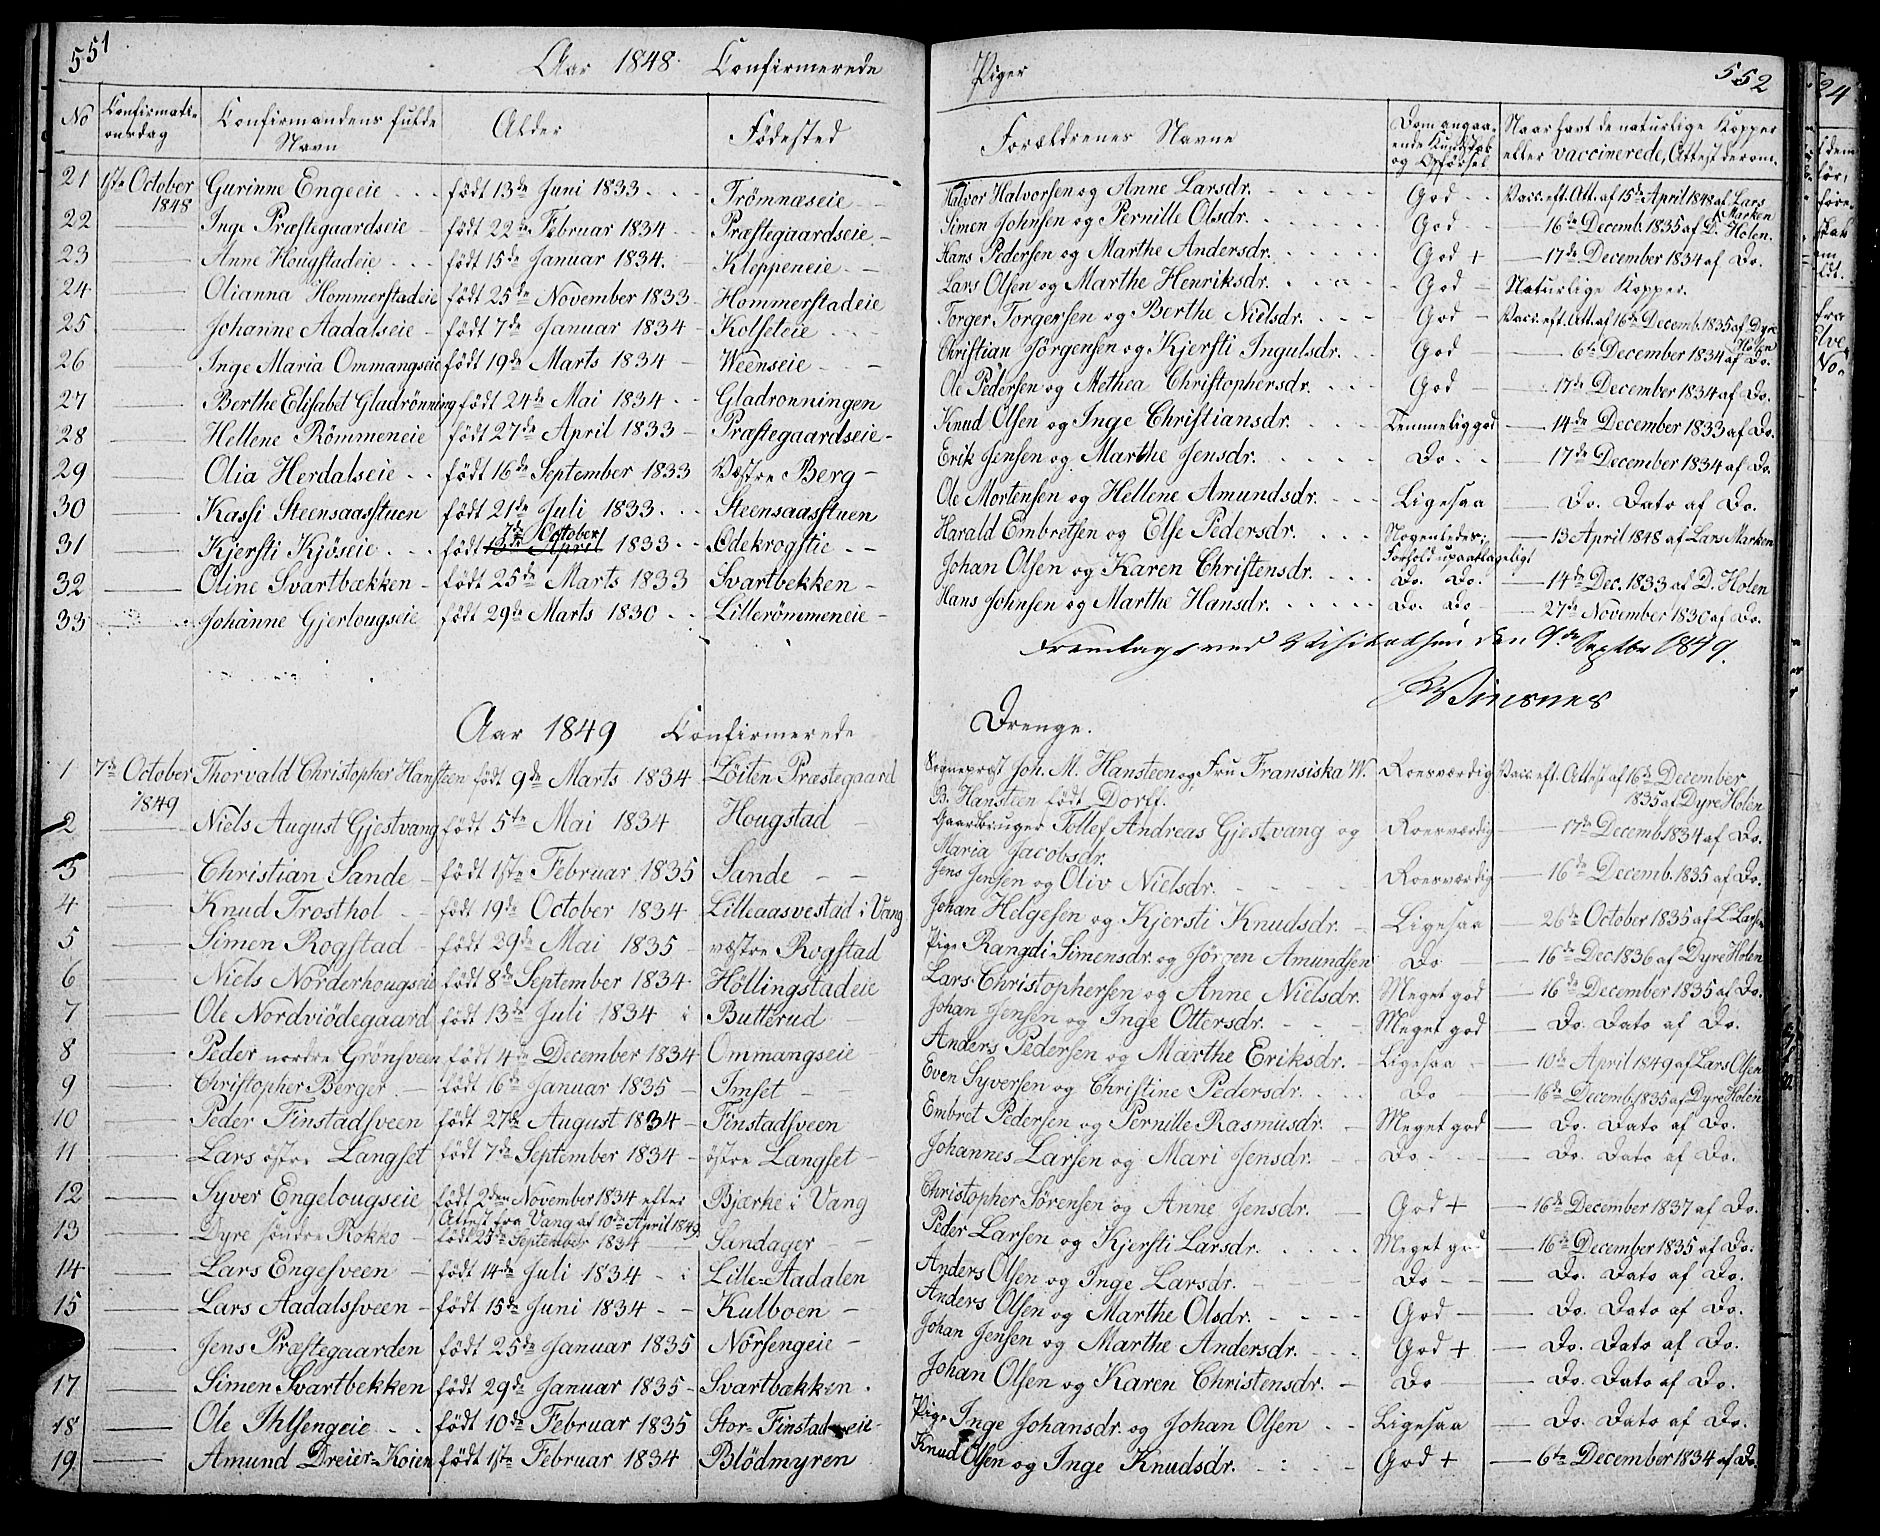 551
Aar 1848. Confirmerede
Piger
552
No
Confirmati-
onsdag
Confirmandens fulde
Navn
Alder
Födested
Forældrenes Navne
Dom angaa-
ende Kundskab
og Opförsel
Naar havt de naturlige Kopper
eller vaccinerede, Attest derom.
21 1ste October 1848 Gurinne Engeeie födt 13de Juni 1833 Trömnæseie Halvor Halvorsen og Anne Larsdr. God Vacc. eft. Att. af 15de April 1848 af Lars Marken
22 Inge Præstegaardseie födt 22de Februar 1834 Præstegaardseie Simen Johnsen og Pernille Olsdr. God 16de Decemb. 1835 af D. Holen.
23 Anne Hougstadeie födt 15de Januar 1834. Kleppeneie Hans Pedersen og Marthe Andersdr. God + 17de December 1834 af Do.
24 Olianna Hommerstadeie födt 25de November 1833 Hommerstadeie Lars Olsen og Marthe Henriksdr. God Naturlige Kopper.
25 Johanne Aadalseie födt 7de Januar 1834 Kolseteie Torger Torgersen og Berthe Nielsdr. God Vacc. eft. Att. af 16de Decemb. 1835 af Dyre Holen
26 Inge Maria Ommangseie födt 19de Marts 1834 Weenseie Christian Jörgensen og Kjersti Ingulsdr. God 6te December 1834 af Do.
27 Berthe Elisabet Gladrönning födt 24de Mai 1834 Gladronningen Ole Pedersen og Methea Christophersdr. God 17de December 1834 af Do.
28 Hellene Römmeneie födt 27de April 1833 Præstegaardseie Knud Olsen og Inge Christiansdr. Temmelig god 14de December 1833 af Do.
29 Olia Herdalseie födt 16de September 1833 Væstre Berg Erik Jensen og Marthe Jensdr. Do. 17de December 1834 af Do.
30 Kassi Steensaasstuen födt 21de Juli 1833 Steensaasstuen Ole Mortensen og Hellene Amundsdr. Ligesaa Do. Dato af Do.
31 Kjersti Kjöseie födt 13de April 7de October 1833 Ödekrogstie Harald Embretsen og Else Pedersdr. Nogenledes; Forhold upaaklageligt 13 April 1848 af Lars Marken
32 Oline Svartbækken födt 25de Marts 1833 Svartbekken Johan Olsen og Karen Christensdr. Do. Do. 14de Dec. 1833 af D. Holen
33 Johanne Gjerlougseie födt 29de Marts 1830 Lillerömmeneie Hans Johnsen og Marthe Hansdr. Do. Do 27de November 1830 af Do.
Fremlagt ved Visitatsen den 9de Septbr 1849.
Winsnes
Aar 1849 Confirmerede
Drenge.
1 7de October 1849 Thorvald Christopher Hansteen födt 9de Marts 1834 Löiten Præstegaard Sognepræst Joh. M. Hansteen og Fru Fransiska W. B. Hansteen födt Dorff. Roesværdig Vacc. eft. Attest af 16de December 1835 af Dyre Holen
2 Niels August Gjestvang födt 5te Mai 1834 Hougstad Gaardbruger Tollef Andreas Gjestvang og Maria Jacobsdr. Roesværdig 17de Decemb 1834 af Do.
3 Christian Sande födt 1ste Februar 1835 Sande Jens Jensen og Oliv Nielsdr. Roesværdig 16de Decemb. 1835 af Do.
4 Knud Trosthol födt 19de October 1834 Lilleaasvestad i Vang Johan Helgesen og Kjersti Knudsdr. Ligesaa 26de October 1835 af L. Larsen
5 Simen Rogstad födt 29de Mai 1835 væstre Rogstad Pige Rangdi Simensdr. og Jörgen Amundsen Do 16de Dec 1836 af Dyre Holen
6 Niels Norderhougseie födt 8de September 1834 Höllingstadeie Lars Christophersen og Anne Nielsdr. Meget god 16de December 1835 af Do.
7 Ole Nordviödegaard födt 13de Juli 1834 Butterud Johan Jensen og Inge Ottersdr. Meget god Do. Dato af Do.
8 Peder nordre Grönsveen födt 4de December 1834 Ommangseie Anders Pedersen og Marthe Eriksdr. Ligesaa 10de April 1849 af Lars Olsen
9 Christopher Berger födt 16de Januar 1835 Imset Even Syversen og Christine Pedersdr. Do 16de Decemb. 1835 af Dyre Holen
10 Peder Finstadsveen födt 27de August 1834 Finstadsveen Embret Pedersen og Pernille Rasmusdr. Meget god Do. Dato af Do.
11 Lars östre Langset födt 7de September 1834 östre Langset Johannes Larsen og Mari Jensdr. Do Do. Dato af Do.
12 Syver Engelougseie födt 2den November 1834 efter Attest fra Vang af 10de April 1849 Bjærke i Vang Christopher Sörensen og Anne Jensdr. God + 16de December 1837 af Do.
13 Dyre söndre Rokko födt 25de September 1834 Sandager Peder Larsen og Kjersti Larsdr. Meget god 16de December 1835 af Do.
14 Lars Engesveen födt 14de Juli 1834 Lille-Aadalen Anders Olsen og Inge Larsdr. Do Do. Dato af Do.
15 Lars Aadalssveen födt 15de Juni 1834 Kulboen Anders Olsen og Marthe Olsdr. God Do. Dato af Do.
Jens Præstegaarden födt 25de Januar 1835 Nörsengeie Johan Jensen og Marthe Andersdr. God + Do. Dato af Do.
17 Simen Svartbekken födt 29de Januar 1835 Svartbækken Johan Olsen og Karen Christensdr. Do Do. Dato af Do.
18 Ole Thlsengeie födt 10de Februar 1835 Stor-Finstadseie Pige Inge Johansdr. og Johan Olsen Ligesaa Do. Dato af Do.
19 Amund Dreier-Koien födt 1ste Februar 1834 Blödmyren Knud Olsen og Inge Knudsdr. God + 6te December 1834 af Do.